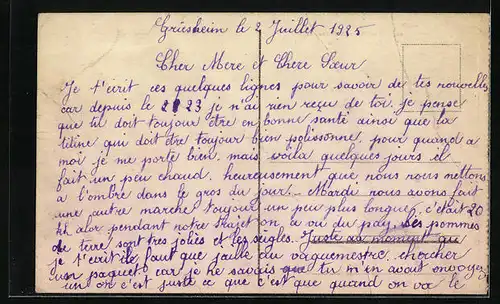 Griesheim le 2 Juillet 1925
Cher Mere et Chere Sœur
Je t'ecrit ces quelques lignes pour savoir de tes nouvelles
car depuis le 23 je n'ai rien reçu de toi. je pense
que tu doit toujour être en bonne santé ainsi que la
titine qui doit être toujour bien polissonne, pour quand a
moi je me porte bien, mais voila quelques jours il
fait un peu chaud, heureusement que nous nous mettons
a l'ombre dans le gros du jour. Mardi nous avons fait
une autre marche toujour un peu plus longue, c'était 20
kk alor pendant notre trajet on a vu du pay, les pommes
de terre sont tres joliès et les seigles. Juste au moment que
je t'ecrit il faut que jaille au vaguemestre, chercher
un paquet car je ne savais que tu m'in avait envoyer
un on c'est juste ce que c'est que quand on va le